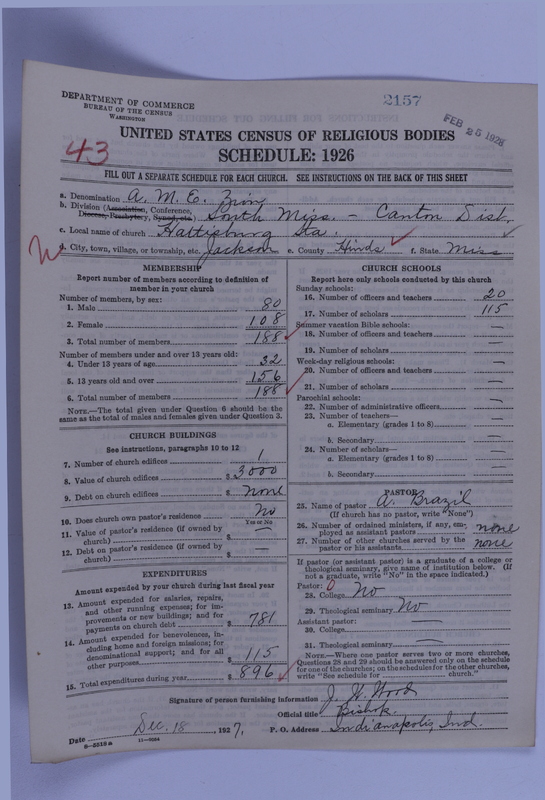 2157
DEPARTMENT OF COMMERCE
BUREAU OF THE CENSUS
WASHINGTON
FEB 25 1928
UNITED STATES CENSUS OF RELIGIOUS BODIES
43
SCHEDULE: 1926
FILL OUT A SEPARATE SCHEDULE FOR EACH CHURCH. SEE INSTRUCTIONS ON THE BACK OF THIS SHEET
a. Denomination A. M. E. Zion
b. Division (Association, Conference,
Diocese, Presbytery, Synod, etc.) South Miss. - Canton Dist.
c. Local name of church Hattisburg Sta.
d. City, town, village, or township, etc. Jackson e. County Hinds f. State Miss
MEMBERSHIP
Report number of members according to definition of
member in your church
Number of members, by sex:
1. Male 80
2. Female 108
3. Total number of members 188
Number of members under and over 13 years old:
4. Under 13 years of age 32
5. 13 years old and over 156
6. Total number of members 188
NOTE.—The total given under Question 6 should be the
same as the total of males and females given under Question 3.
CHURCH BUILDINGS
See instructions, paragraphs 10 to 12
7. Number of church edifices 1
8. Value of church edifices $ 3000
9. Debt on church edifices $ none
10. Does church own pastor's residence No
Yes or No
11. Value of pastor's residence (if owned by
church) $ —
12. Debt on pastor's residence (if owned by
church) $ —
EXPENDITURES
Amount expended by your church during last fiscal year
13. Amount expended for salaries, repairs,
and other running expenses; for im-
provements or new buildings; and for
payments on church debt $ 781
14. Amount expended for benevolences, in-
cluding home and foreign missions; for
denominational support; and for all
other purposes $ 115
15. Total expenditures during year $ 896
CHURCH SCHOOLS
Report here only schools conducted by this church
Sunday schools:
16. Number of officers and teachers 20
17. Number of scholars 115
Summer vacation Bible schools:
18. Number of officers and teachers —
19. Number of scholars —
Week-day religious schools:
20. Number of officers and teachers —
21. Number of scholars —
Parochial schools:
22. Number of administrative officers —
23. Number of teachers—
a. Elementary (grades 1 to 8) —
b. Secondary —
24. Number of scholars—
a. Elementary (grades 1 to 8) —
b. Secondary —
PASTOR
25. Name of pastor A. Brazil
(If church has no pastor, write "None")
26. Number of ordained ministers, if any, em-
ployed as assistant pastors none
27. Number of other churches served by the
pastor or his assistants none
If pastor (or assistant pastor) is a graduate of a college or
theological seminary, give name of institution below. (If
not a graduate, write "No" in the space indicated.)
Pastor: 0
28. College No
29. Theological seminary No
Assistant pastor:
30. College —
31. Theological seminary —
NOTE.—Where one pastor serves two or more churches,
Questions 28 and 29 should be answered only on the schedule
for one of the churches; on the schedules for the other churches,
write "See schedule for church."
Signature of person furnishing information J. W. Wood
Official title Bishop.
Date Dec. 18, 1927. P. O. Address Indianapolis, Ind.